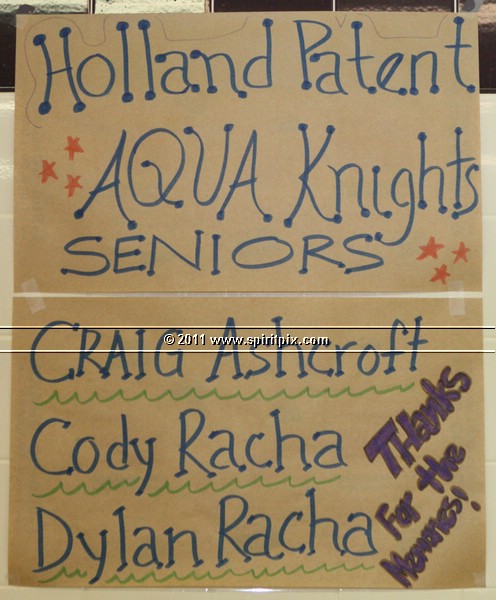 Holland Patent
AQUA Knights
SENIORS
© 2011 www.spiritpix.com
CRAIG Ashcroft
Cody Racha
Dylan Racha
THanks
For the
Memories!